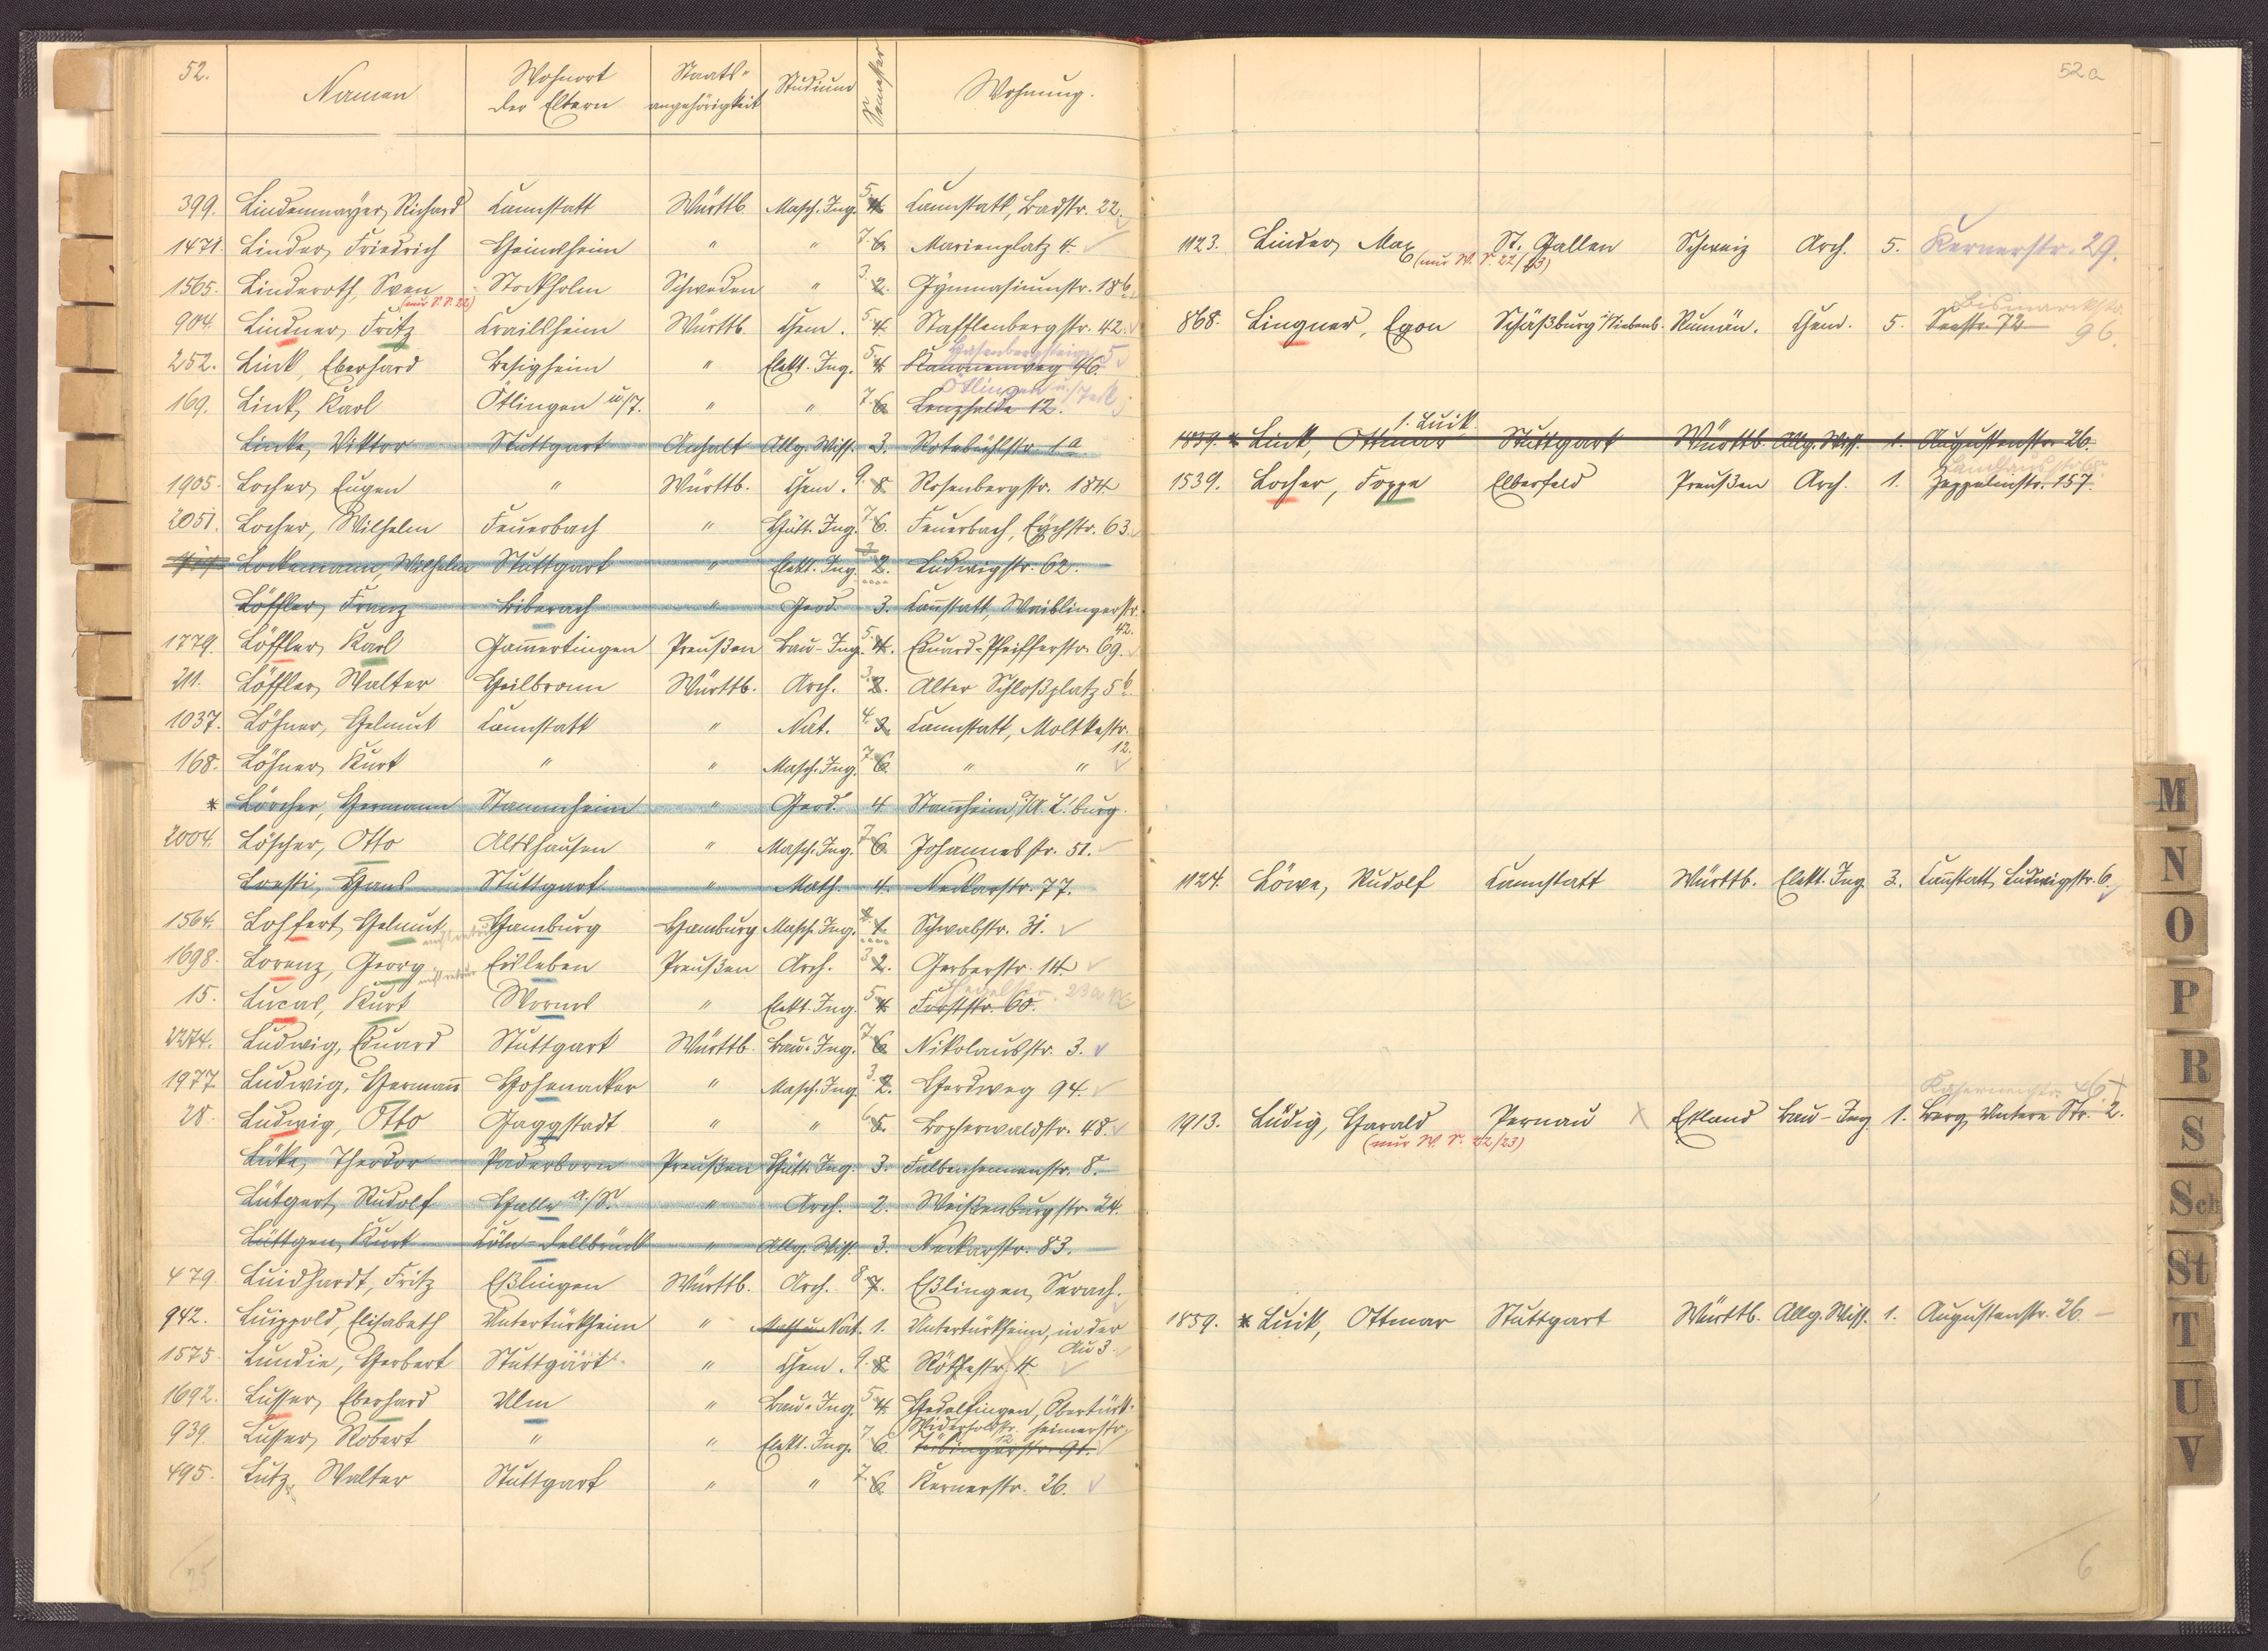 52.
Namen Wohnort der Eltern Staats-angehörigkeit Studium Semester Wohnung.
399. Lindenmayer, Richard Cannstatt Württb. Masch. Ing. 5. 4. Cannstatt, Badstr. 22.
1471. Linder, Friedrich Heimsheim " " 7. 6. Marienplatz 4.
1565. Linderoth, Sven (nur S. S. 22) Stockholm Schweden " 3. 2. Gymnasiumstr. 18b.
904. Lindner, Fritz Crailsheim Württb. Chem. 5. 4. Stafflenbergstr. 42.
252. Link, Eberhard Besigheim " Elekt. Ing. 5. 4. Kanonenweg 46. Hasenbergsteige 5
169. Link, Karl Ötlingen u/T. " " 7. 6. Lenzhalde 12. Ötlingen u./Teck
Linke, Viktor Stuttgart Anhalt Allg. Wiss. 3. Rotebühlstr. 1a.
1905. Locher, Eugen " Württb. Chem. 9. 8. Rosenbergstr. 184.
2051. Locher, Wilhelm Feuerbach " Hütt. Ing. 7. 6. Feuerbach, Eychstr. 63.
Lockemann, Wilhelm Stuttgart " Elekt. Ing. 3. 2. Ludwigstr. 62.
Löffler, Franz Biberach " Geod. 3. Canstatt, Waiblingerstr. 42.
1779. Löffler, Karl Gamertingen Preußen Bau-Ing. 5. 4. Eduard-Pfeifferstr. 69.
211. Löffler, Walter Heilbronn Württb. Arch. 3. 2. Alter Schloßplatz 5b.
1037. Löhner, Helmut Cannstatt " Nat. 4. 3. Cannstatt, Moltkestr. 12.
168. Löhner, Kurt " " Masch. Ing. 7. 6. " "
* Lörcher, Hermann Stammheim " Geod. 4 Stamheim, O/A. L'burg.
2004. Löscher, Otto Altshausen " Masch. Ing. 7. 6. Johannesstr. 51.
Loesti, Hans Stuttgart " Math. 4. Neckarstr. 77.
1564. Lohfert, Helmut Hamburg Hamburg Masch. Ing. 2. 1. Schwabstr. 31.
1698. Lorenz, Georg Eisleben Preußen Arch. 3. 2. Gerberstr. 14.
15. Lucas, Kurt Worms " Elekt. Ing. 5. 4. Forststr. 60. Hegelstr. 23a
2274. Ludwig, Eduard Stuttgart Württb. Bau-Ing. 7. 6. Nikolausstr. 3.
1977. Ludwig, Herman̄ Hohenacker " Masch. Ing. 3. 2. Herdweg 94.
28. Ludwig, Otto Gaggstadt " " 6. 5. Bopserwaldstr. 48.
Lüke, Theodor Paderborn Preußen Hütt. Ing. 3. Falbenhennenstr. 8.
Lütgert, Rudolf Halle a./S. " Arch. 2. Weißenburgstr. 24.
Lüttgen, Kurt Cöln-Dellbrück " Allg. Wiss. 3. Neckarstr. 83.
479. Luidhardt, Fritz Eßlingen Württb. Arch. 8. 7. Eßlingen, Serach.
942. Luippold, Elisabeth Untertürkheim " Math. u. Nat. 1. Untertürkheim, in der Au 3.
1575. Lundie, Herbert Stuttgart " Chem. 9. 8. Rötestr. 4.
1692. Lusser, Eberhard Ulm " Bau-Ing. 5. 4. Hedelfingen, Obertürkheimerstr.
939. Lusser, Robert " " Elekt. Ing. 7. 6. Tübingerstr. 91. Widerholdstr. 12
495. Lutz, Walter Stuttgart " " 7. 6. Kernerstr. 26.
52a
1123. Linder, Max (nur W. S. 22/23) St. Gallen Schweiz Arch. 5. Kernerstr. 29.
868. Lingner, Egon Schäßburg i/Siebenb. Rumän. Chem. 5. Seestr. 72 Bismarckstr. 96.
1859. * Link, Ottmar s. Luik. Stuttgart Württb. Allg. Wiss. 1. Augustenstr. 26.
1539. Locher, Foppe Elberfeld Preußen Arch. 1. Zeppelinstr. 157.
1124. Löwe, Rudolf Cannstatt Württb. Elekt. Ing. 3. Canstatt, Ludwigstr. 6.
1913. Lüdig, Harald (nur W. S. 22/23) Pernau Estland Bau-Ing 1. Berg, Untere Str. 2. 46
1859. * Luik, Ottmar Stuttgart Württb. Allg. Wiss. 1. Augustenstr. 26.
6
M
N
O
P
R
S
Sch
St
T
U
V